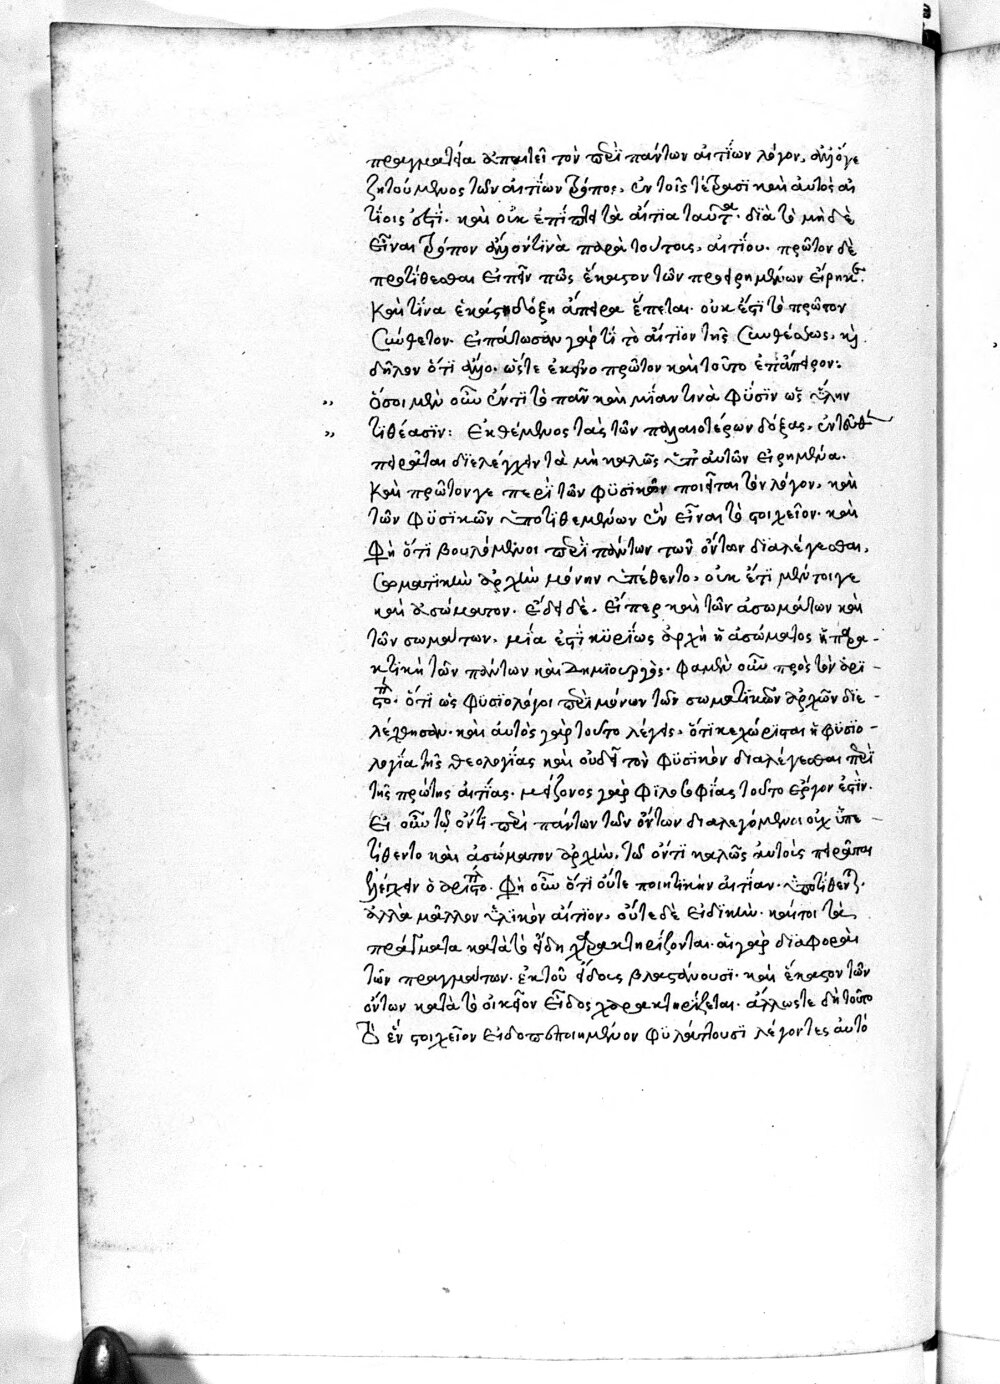 πραγματεία ἀπαιτεῖ τὸν περὶ πάντων αἰτίων λόγον, ἀλλ' ὅγε
ζητούμενος τῶν αἰτίων τρόπος, ἐν τοῖς τέτρασι καὶ αὐτὸς αἰ
τίοις ἐστί. καὶ οὐκ ἐπὶ τὰ αἴτια ταῦτα. διὰ τὸ μὴ δὲ
εἶναι τρόπον ἄλλον τινὰ παρὰ τούτοις, αἰτίου. πρῶτον δὲ
προτίθεσθαι εἰπεῖν πῶς ἕκαστον τῶν προειρημένων εἴρηκε.
καὶ τίνα ἑκάστη δόξῃ ἄπειρα ἕπεται. οὐκ ἔστι τὸ πρῶτον
σύνθετον. εἰπάτωσαν γὰρ τί τὸ αἴτιον τῆς συνθέσεως, καὶ
δῆλον ὅτι ἄλλο. ὥστε ἐκεῖνο πρῶτον καὶ τοῦτο ἐπ' ἄπειρον:
ὅσοι μὲν οὖν ἕν τι τὸ πᾶν καὶ μίαν τινὰ φύσιν ὡς ὕλην
τιθέασιν: Ἐκθέμενος τὰς τῶν παλαιοτέρων δόξας, ἐντεῦθεν
πειρᾶται διελέγχειν τὰ μὴ καλῶς ὑπ' αὐτῶν εἰρημένα.
καὶ πρῶτον γε περὶ τῶν φυσικῶν ποιεῖται τὸν λόγον, καὶ
τῶν φυσικῶν ὑποτιθεμένων ἓν εἶναι τὸ στοιχεῖον. καὶ
φησὶ ὅτι βουλόμενοι περὶ πάντων τῶν ὄντων διαλέγεσθαι,
σωματικὴν ἀρχὴν μόνην ὑπέθεντο, οὐκ ἔτι μέντοιγε
καὶ ἀσώματον. ἔδει δὲ, εἴπερ καὶ τῶν ἀσωμάτων καὶ
τῶν σωμάτων, μία ἐστὶ κυρίως ἀρχὴ ἡ ἀσώματος ἡ παρα-
κτικὴ τῶν πάντων καὶ δημιουργὸς. φαμὲν οὖν πρὸς τὸν ἀρι-
στο. ὅτι ὡς φυσιολόγοι περὶ μόνων τῶν σωματικῶν ἀρχῶν διε-
λέχθησαν. καὶ αὐτὸς γὰρ τοῦτο λέγεις, ὅτι κεχώρισται ἡ φυσιο-
λογία τῆς θεολογίας καὶ οὐ δεῖ τὸν φυσικὸν διαλέγεσθαι περὶ
τῆς πρώτης αἰτίας. μείζονος γὰρ φιλοσοφίας τοῦτο ἔργον ἐστίν.
εἰ οὖν τῷ ὄντι περὶ πάντων τῶν ὄντων διαλεγόμενοι οὐχ ὑπε-
τίθεντο καὶ ἀσώματον ἀρχὴν, τῷ ὄντι καλῶς αὐτοὺς πειρᾶται
ἐλέγχειν ὁ ἀριστο. φησὶ οὖν ὅτι οὔτε ποιητικὴν αἰτίαν ὑποτίθενται.
ἀλλὰ μᾶλλον ὑλικὸν αἴτιον, οὔτε δὲ εἰδικὴν. καίτοι τὰ
πράγματα κατὰ τὸ εἶδος χαρακτηρίζονται. αἱ γὰρ διαφοραὶ
τῶν πραγμάτων. ἐκ τοῦ εἴδους βλαστάνουσι. καὶ ἕκαστον τῶν
ὄντων κατὰ τὸ οἰκεῖον εἶδος χαρακτηρίζεται. ἄλλωστε δὴ τοῦτο
τὸ ἓν στοιχεῖον εἰδοπεποιημένον φυλάττουσι λέγοντες αὐτὸ